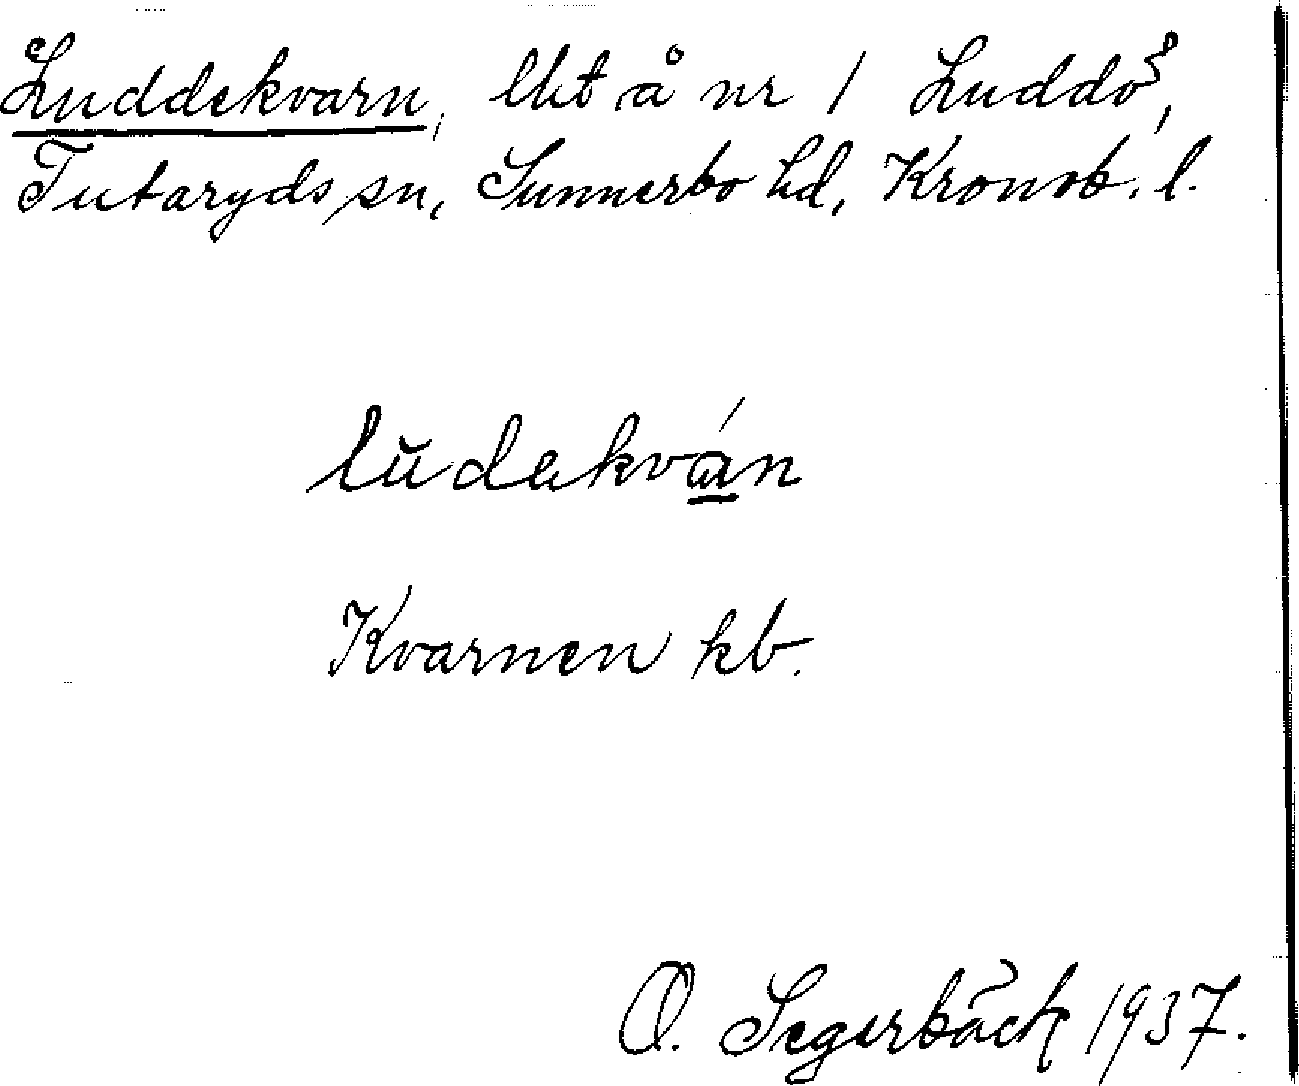 Luddekvarn, lht å nr 1 Luddö,
Tutaryds sn, Sunnerbo hd, Kronob. l.
lŭdekván
Kvarnen kb.
O. Segerbäck 1937.